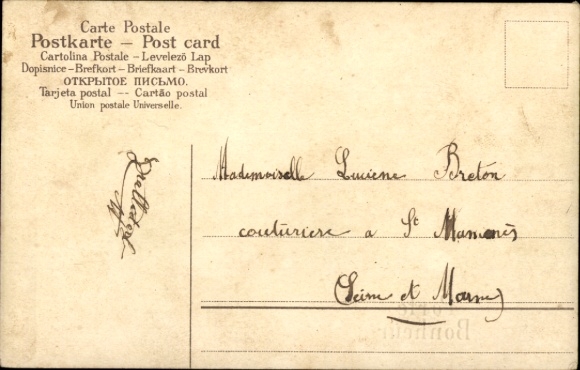 Carte Postale
Postkarte – Post card
Cartolina Postale – Levelező Lap
Dopisnice – Brefkort – Briefkaart – Brevkort
ОТКРЫТОЕ ПИСЬМО.
Tarjeta postal –– Cartão postal
Union postale Universelle.
Mademoiselle Luciene Breton
couturiere a St Mammès
(Seine et Marne)
Bonheur